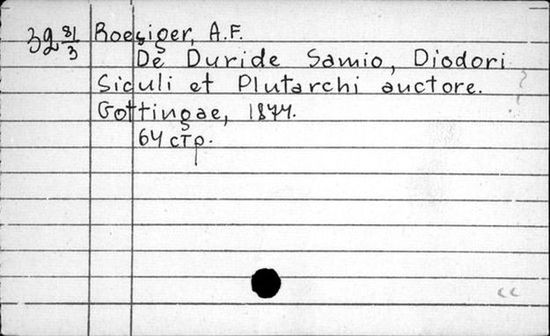 39 81/3 Roesiger, A.F.
De Duride Samio, Diodori
Siculi et Plutarchi auctore.
Gottingae, 1877.
64 стр.